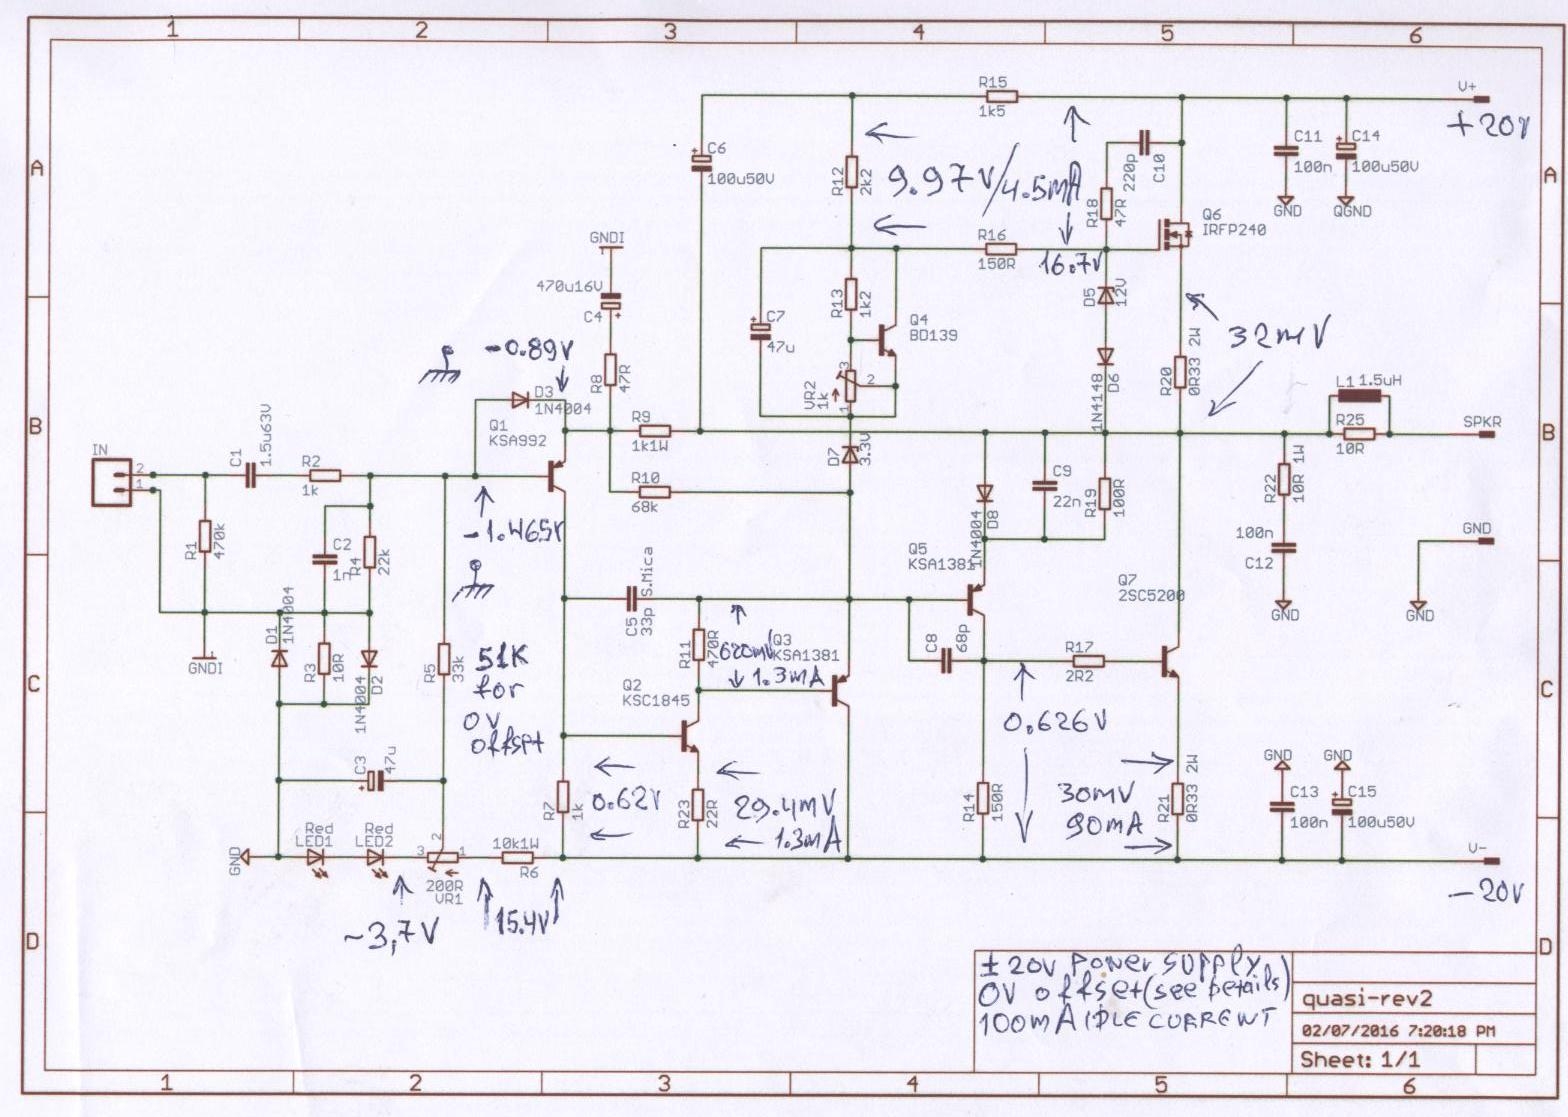 1 2 3 4 5 6
A
B
C
D
A
B
C
D
R15
1k5
V+
+20V
C6
100u50V
R12
2k2
9.97V/4.5mA
220p
C10
R18
47R
C11
100n
GND
C14
100u50V
QGND
Q6
IRFP240
R16
150R
16.7V
GNDI
470u16V
C4
R8
47R
R13
1k2
C7
47u
Q4
BD139
D5
12V
D6
1N4148
R20
0R33 2W
32mV
VR2
1k
3
2
1
-0.89V
D3
1N4004
Q1
KSA992
R9
1k1W
R10
68k
D7
3.3V
L1 1.5uH
R25
10R
SPKR
IN
2
1
C1
1.5u63V
R2
1k
R1
470k
GNDI
C2
1n
R4
22k
-1.465V
D8
1N4004
C9
22n
R19
100R
R22
10R 1W
100n
C12
GND
GND
GND
Q5
KSA1381
Q7
2SC5200
C5
33p S.Mica
D1
1N4004
R3
10R
D2
1N4004
R5
33k
51K
for
0V
offset
R11
470R
620mV
1.3mA
Q3
KSA1381
Q2
KSC1845
C8
68p
R17
2R2
0.626V
C3
47u
R7
1k
0.62V
R23
22R
29.4mV
1.3mA
R14
150R
30mV
90mA
R21
0R33 2W
GND
C13
100n
GND
C15
100u50V
GND
Red
LED1
Red
LED2
3
2
1
200R
VR1
10k1W
R6
~3,7V
15.4V
V-
-20V
± 20V POWER SUPPLY,
0V offset (see details)
100mA IDLE CURRENT
quasi-rev2
02/07/2016 7:20:18 PM
Sheet: 1/1
1 2 3 4 5 6